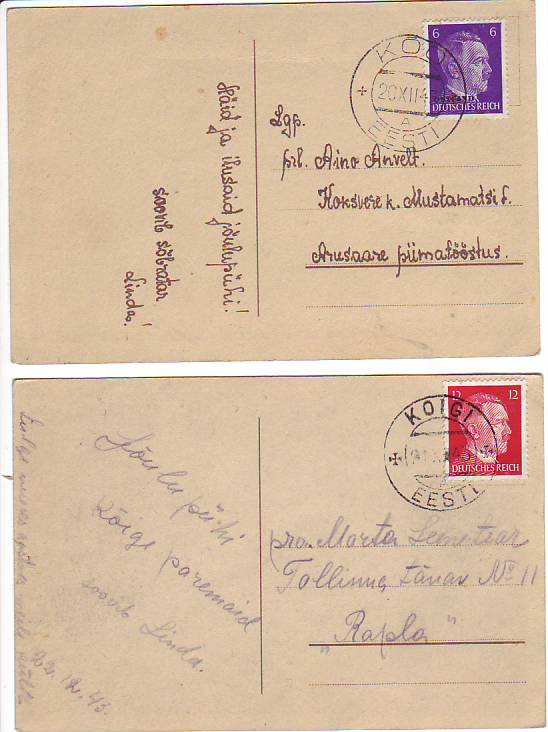 6 6
DEUTSCHES REICH
KOIGI
20 XII 4
A
EESTI
Häid ja ilusaid jõulupühi!
soovib sõbratar
Linda!
Lgp.
prl. Aino Anvelt.
Koksvere k. Mustamatsi t.
Arusaare piimatööstus.
12 12
DEUTSCHES REICH
KOIGI
EESTI
Jõulu pühi
kõige paremaid
soovib Linda.
20. 12. 43.
pra. Marta
Tallinna tänav № 11
"Rapla"